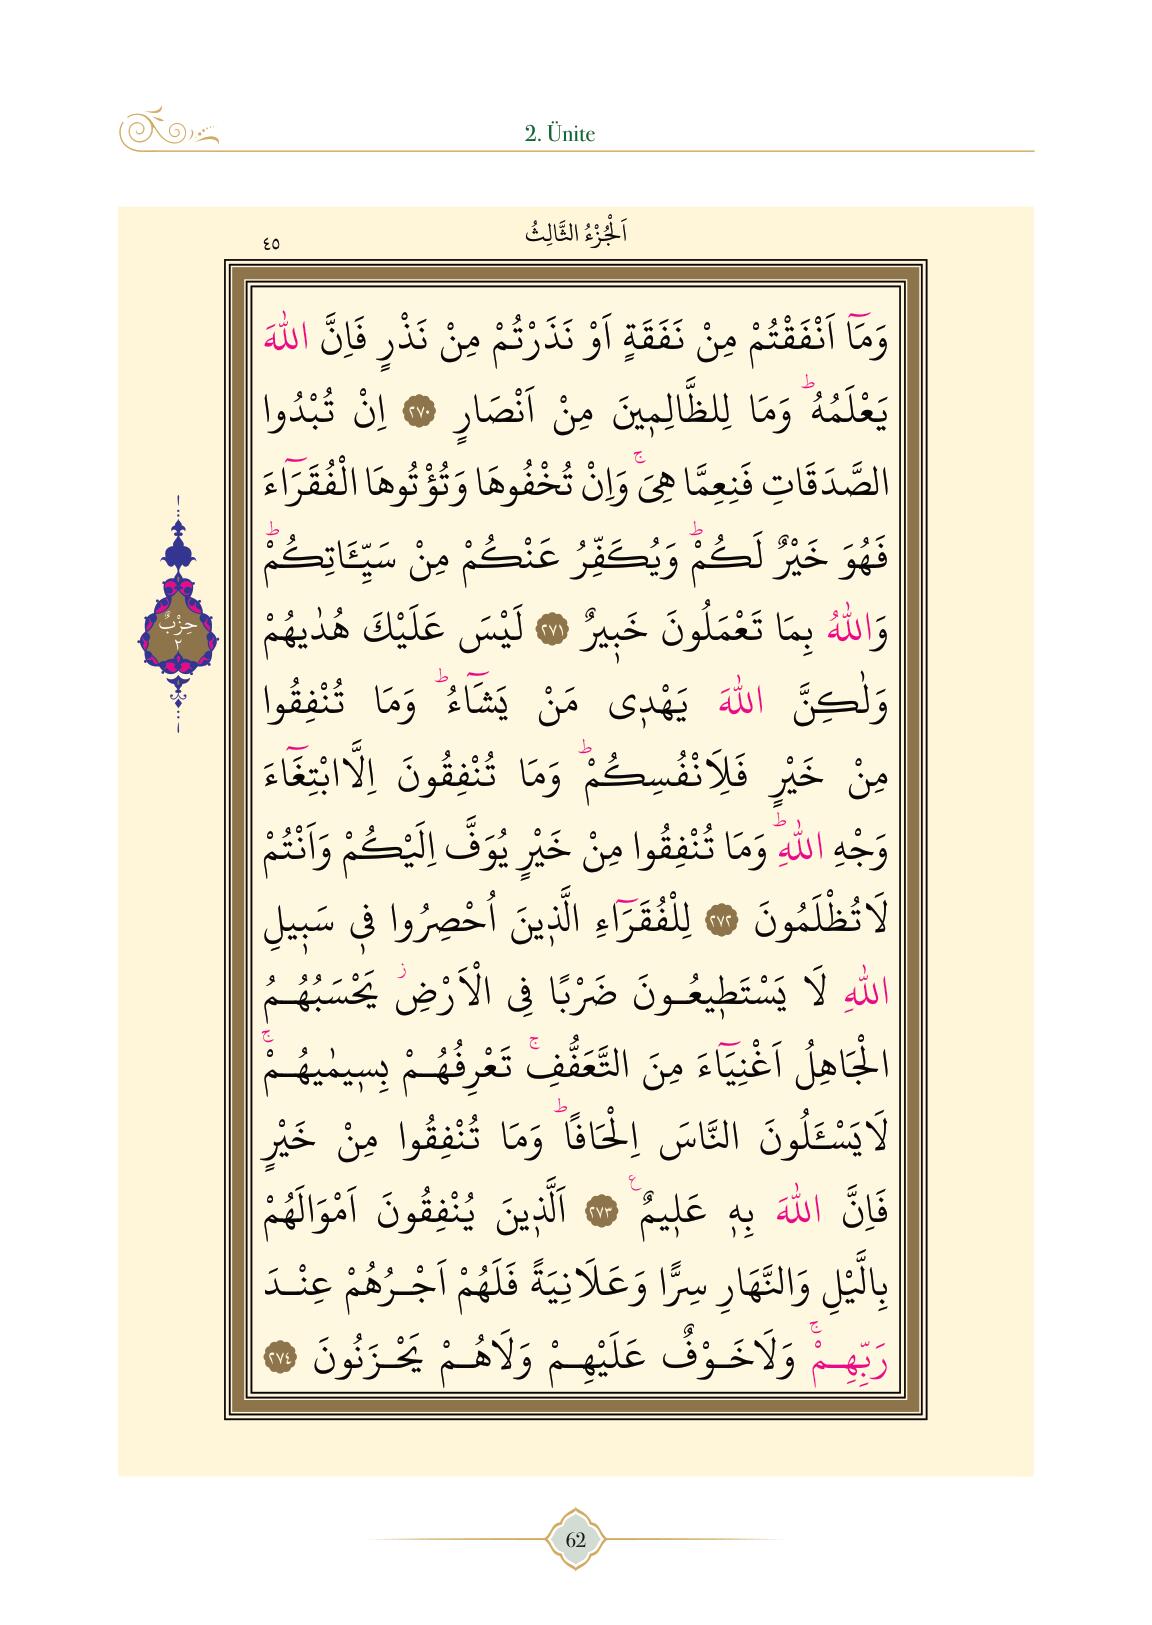 2. Ünite
اَلْجُزْءُ الثَّالِثُ
٤٥
وَمَٓا اَنْفَقْتُمْ مِنْ نَفَقَةٍ اَوْ نَذَرْتُمْ مِنْ نَذْرٍ فَاِنَّ اللّٰهَ
يَعْلَمُهُۜ وَمَا لِلظَّالِم۪ينَ مِنْ اَنْصَارٍ ﴿٢٧٠﴾ اِنْ تُبْدُوا
الصَّدَقَاتِ فَنِعِمَّا هِيَۚ وَاِنْ تُخْفُوهَا وَتُؤْتُوهَا الْفُقَرَٓاءَ
فَهُوَ خَيْرٌ لَكُمْۜ وَيُكَفِّرُ عَنْكُمْ مِنْ سَيِّـَٔاتِكُمْۜ
وَاللّٰهُ بِمَا تَعْمَلُونَ خَب۪يرٌ ﴿٢٧١﴾ لَيْسَ عَلَيْكَ هُدٰيهُمْ
وَلٰكِنَّ اللّٰهَ يَهْد۪ى مَنْ يَشَٓاءُۜ وَمَا تُنْفِقُوا
مِنْ خَيْرٍ فَلِاَنْفُسِكُمْۜ وَمَا تُنْفِقُونَ اِلَّا ابْتِغَٓاءَ
وَجْهِ اللّٰهِۜ وَمَا تُنْفِقُوا مِنْ خَيْرٍ يُوَفَّ اِلَيْكُمْ وَاَنْتُمْ
لَا تُظْلَمُونَ ﴿٢٧٢﴾ لِلْفُقَرَٓاءِ الَّذ۪ينَ اُحْصِرُوا ف۪ى سَب۪يلِ
اللّٰهِ لَا يَسْتَط۪يعُونَ ضَرْبًا فِى الْاَرْضِۘ يَحْسَبُهُمُ
الْجَاهِلُ اَغْنِيَٓاءَ مِنَ التَّعَفُّفِۚ تَعْرِفُهُمْ بِس۪يمٰيهُمْۚ
لَا يَسْـَٔلُونَ النَّاسَ اِلْحَافًاۜ وَمَا تُنْفِقُوا مِنْ خَيْرٍ
فَاِنَّ اللّٰهَ بِه۪ عَل۪يمٌ ع ﴿٢٧٣﴾ اَلَّذ۪ينَ يُنْفِقُونَ اَمْوَالَهُمْ
بِالَّيْلِ وَالنَّهَارِ سِرًّا وَعَلَانِيَةً فَلَهُمْ اَجْرُهُمْ عِنْدَ
رَبِّهِمْۚ وَلَا خَوْفٌ عَلَيْهِمْ وَلَا هُمْ يَحْزَنُونَ ﴿٢٧٤﴾
حِزْبٌ
٢
62